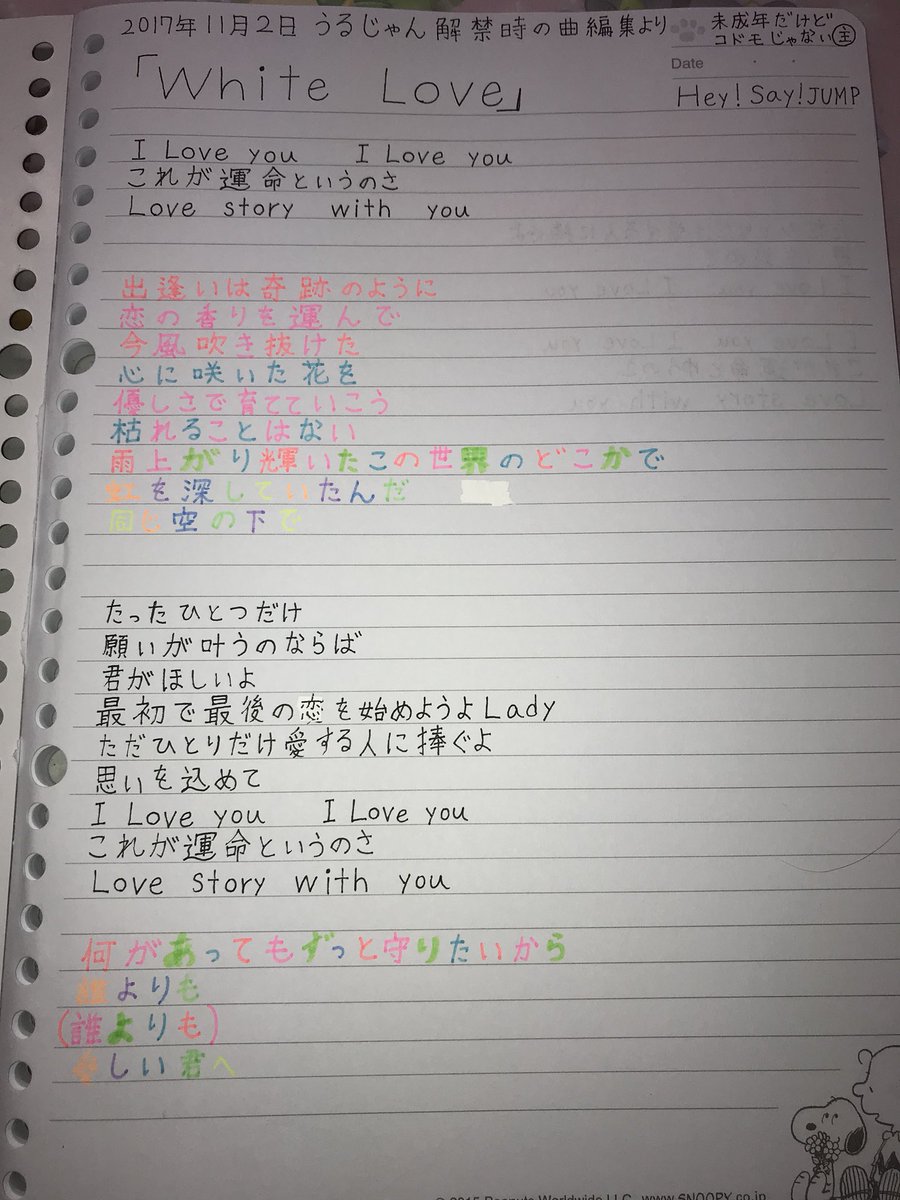 2017年11月2日 うるじゃん解禁時の曲編集より
未成年だけど
コドモじゃない㊤
Date
「White Love」
Hey! Say! JUMP
I Love you I Love you
これが運命というのさ
Love story with you
出逢いは奇跡のように
恋の香りを運んで
今風吹き抜けた
心に咲いた花を
優しさで育てていこう
枯れることはない
雨上がり輝いたこの世界のどこかで
虹を深していたんだ
同じ空の下で
たったひとつだけ
願いが叶うのならば
君がほしいよ
最初で最後の恋を始めようよLady
ただひとりだけ愛する人に捧ぐよ
思いを込めて
I Love you I Love you
これが運命というのさ
Love story with you
何があってもずっと守りたいから
誰よりも
(誰よりも)
愛しい君へ
© 2015 Peanuts Worldwide LLC www.SNOOPY.co.jp